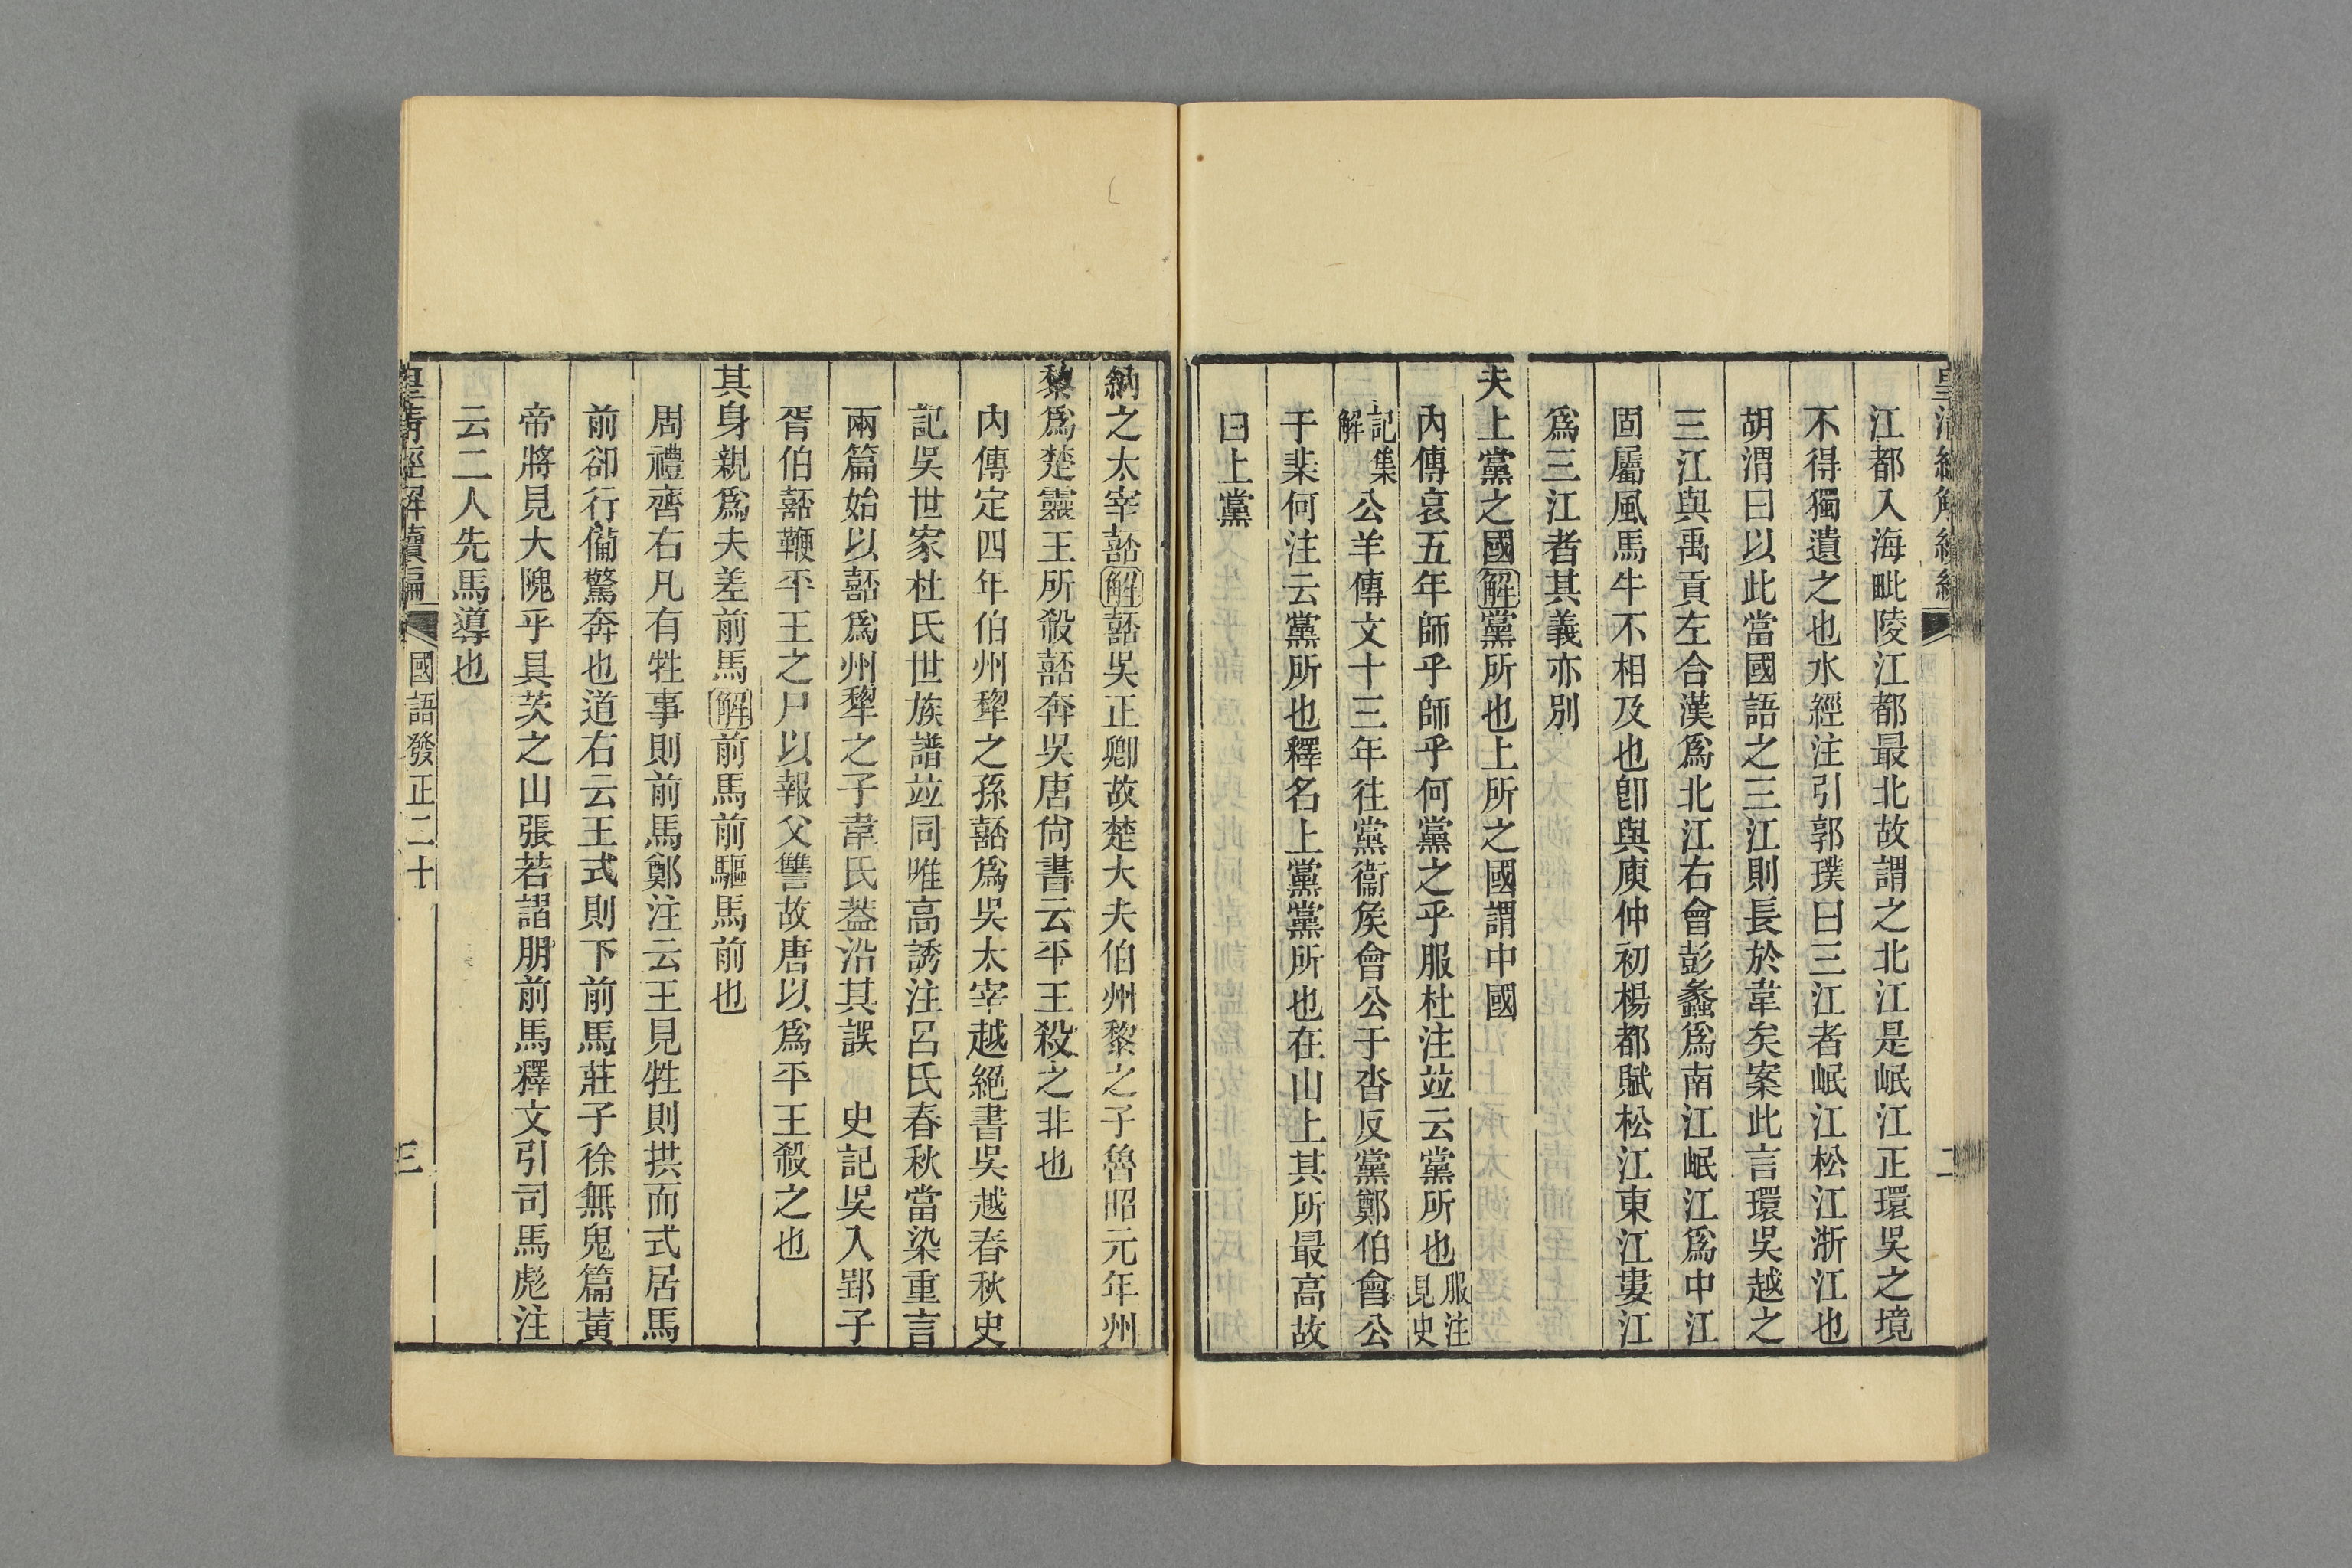 江都入海毗陵江都最北故謂之北江是岷江正環吳之境
不得獨遺之也水經注引郭璞曰三江者岷江松江浙江也
胡渭曰以此當國語之三江則長於韋矣案此言環吳越之
三江與禹貢左合漢爲北江右會彭蠡爲南江岷江爲中江
固屬風馬牛不相及也卽與庾仲初楊都賦松江東江婁江
爲三江者其義亦別
夫上黨之國解黨所也上所之國謂中國
內傳哀五年師乎師乎何黨之乎服杜注竝云黨所也服注見史
記集解公羊傳文十三年往黨衞矦會公于沓反黨鄭伯會公
于棐何注云黨所也釋名上黨黨所也在山上其所最高故
曰上黨
納之太宰嚭解嚭吳正卿故楚大夫伯州黎之子魯昭元年州
黎爲楚靈王所殺嚭奔吳唐尙書云平王殺之非也
內傳定四年伯州犂之孫嚭爲吳太宰越絕書吳越春秋史
記吳世家杜氏世族譜竝同唯高誘注呂氏春秋當染重言
兩篇始以嚭爲州犂之子韋氏葢沿其誤 史記吳入郢子
胥伯嚭鞭平王之尸以報父讐故唐以爲平王殺之也
其身親爲夫差前馬解前馬前驅馬前也
周禮齊右凡有牲事則前馬鄭注云王見牲則拱而式居馬
前卻行備驚奔也道右云王式則下前馬莊子徐無鬼篇黃
帝將見大隗乎具茨之山張若謵朋前馬釋文引司馬彪注
云二人先馬導也
皇清經解續編 國語發正二十 三